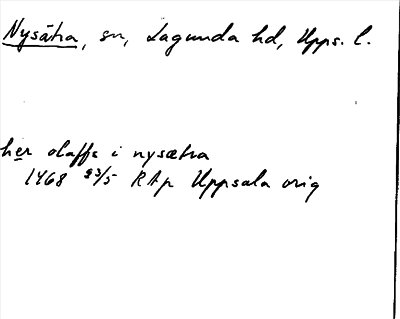 Nysätra, sn, Lagunda hd, Upps. l.
her olaffs i nysætra
1468 23/5 RAp Uppsala orig